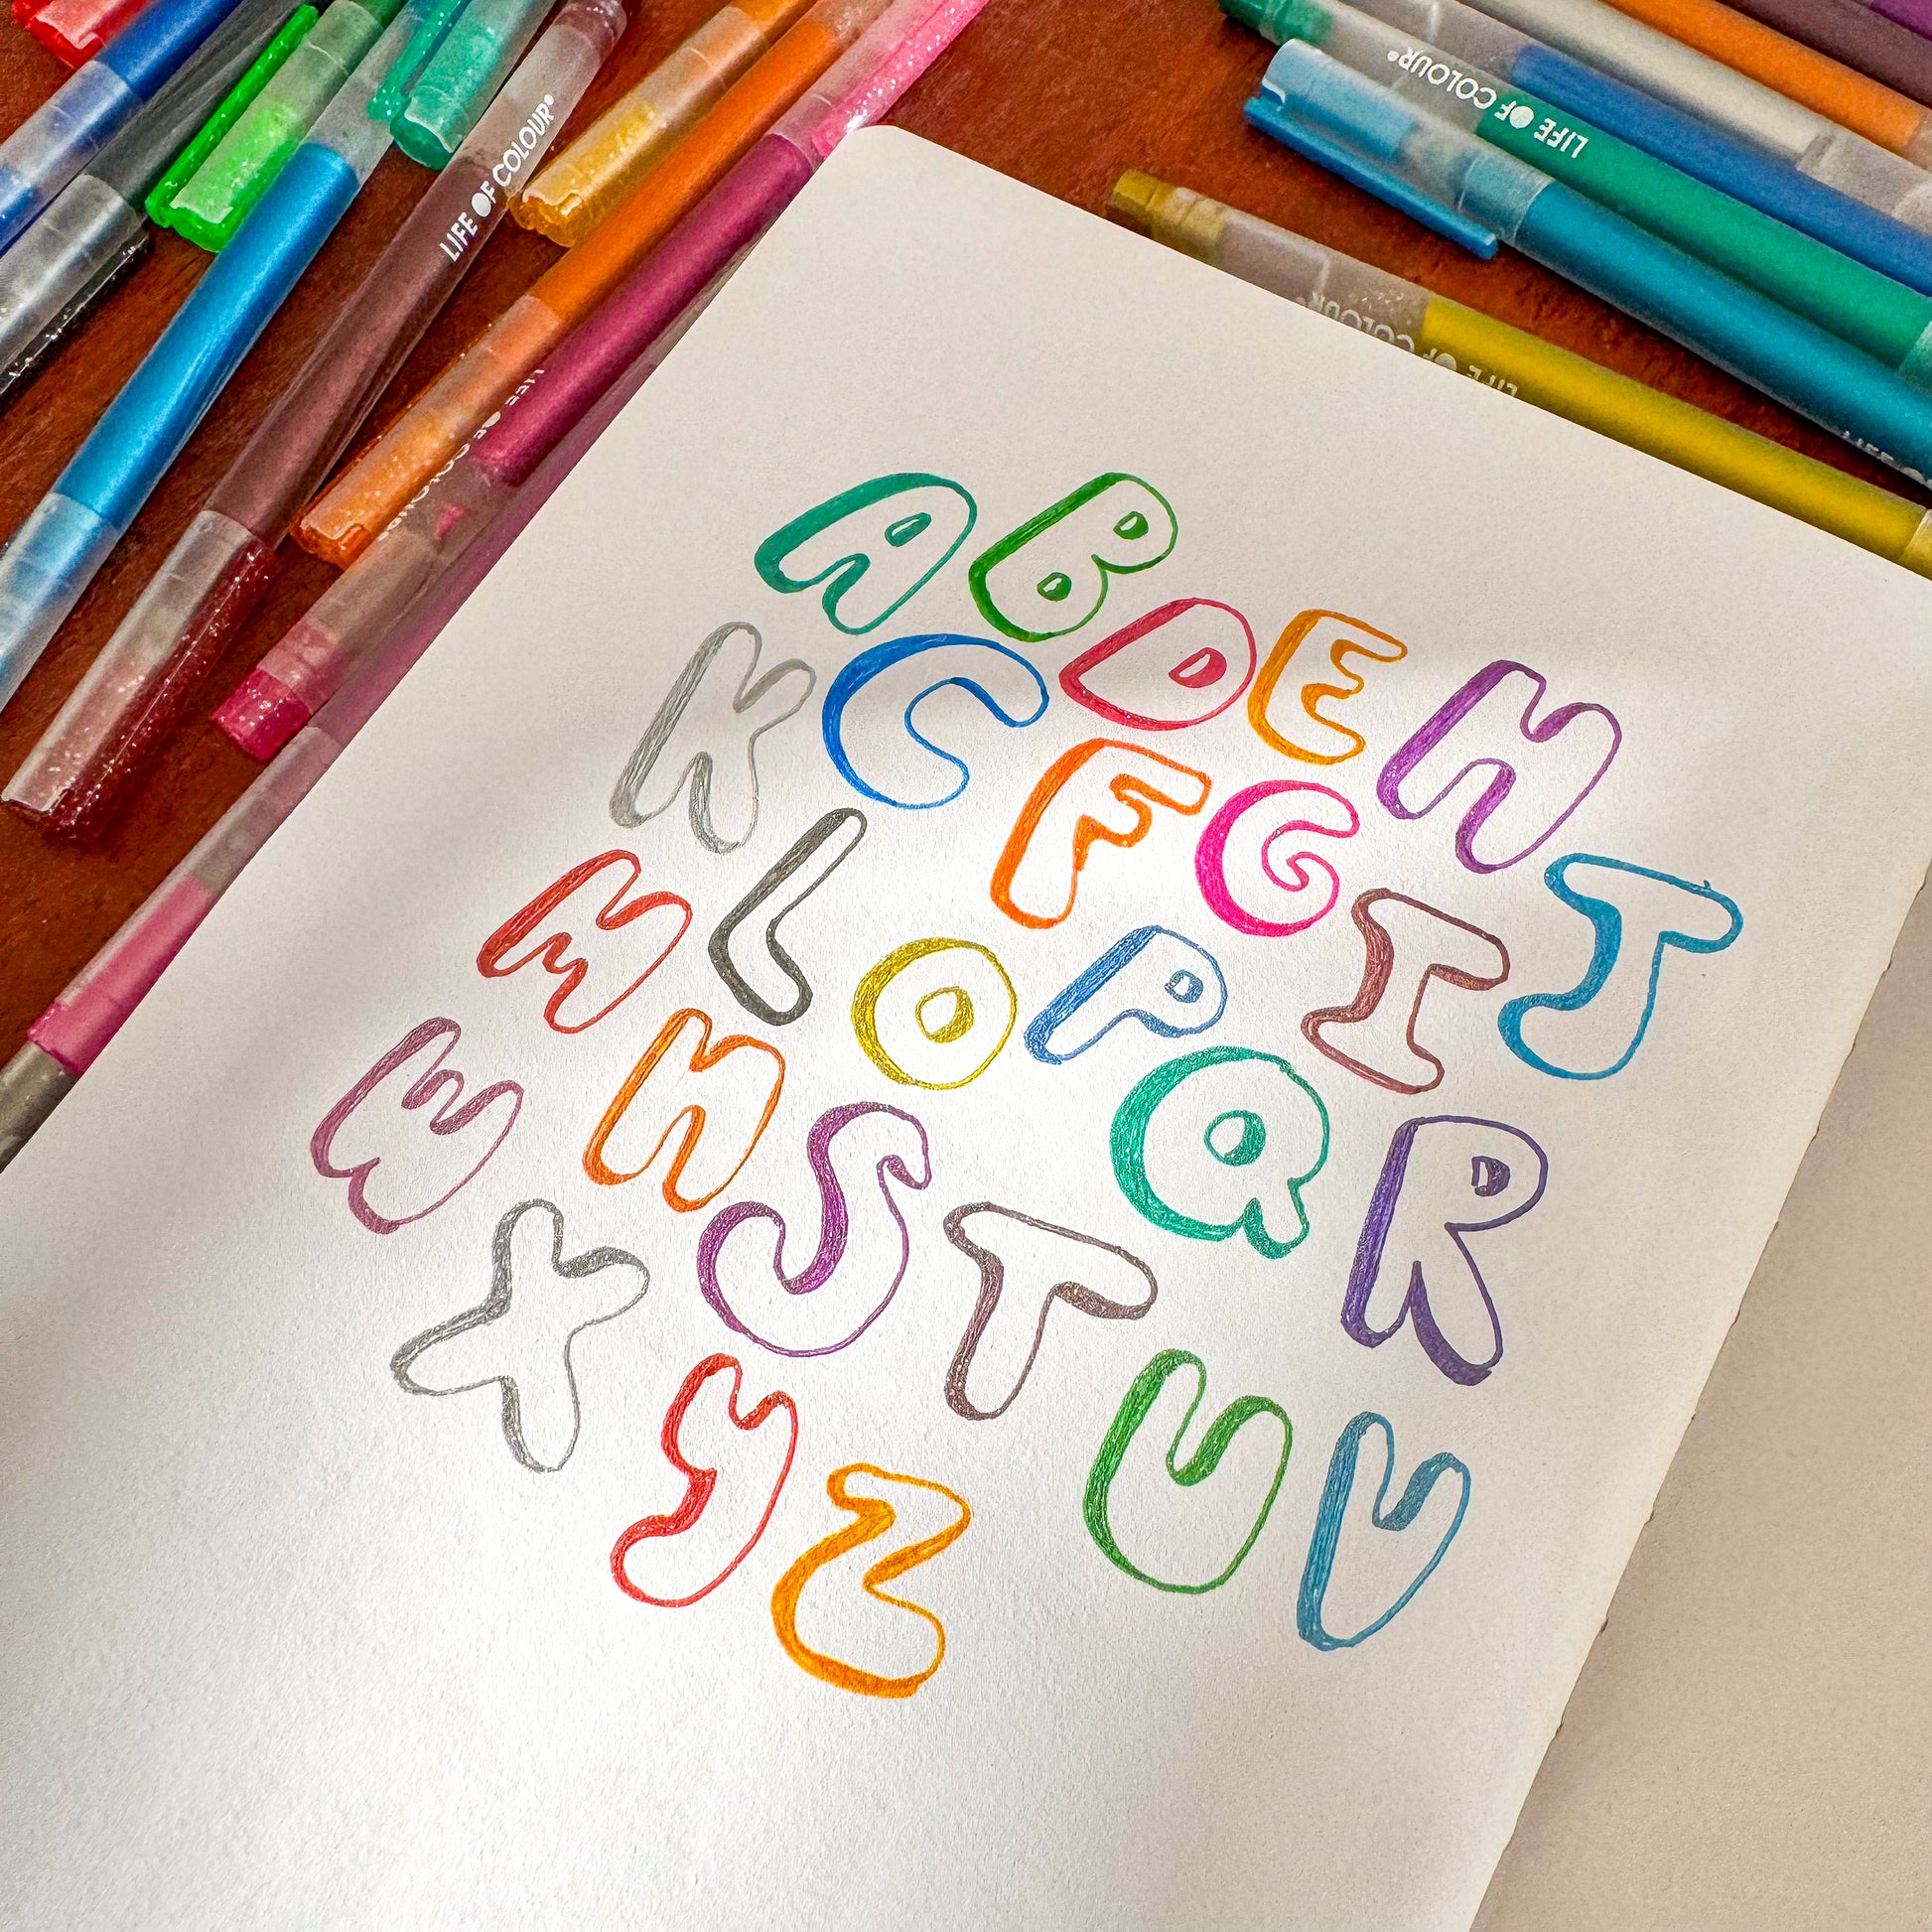 LIFE OF COLOUR®
LIFE OF COLOUR®
LIFE OF COLOUR®
LIFE OF COLOUR
A B D E H
K C F G I J
M L O P Q R
W N S T U V
X Y Z